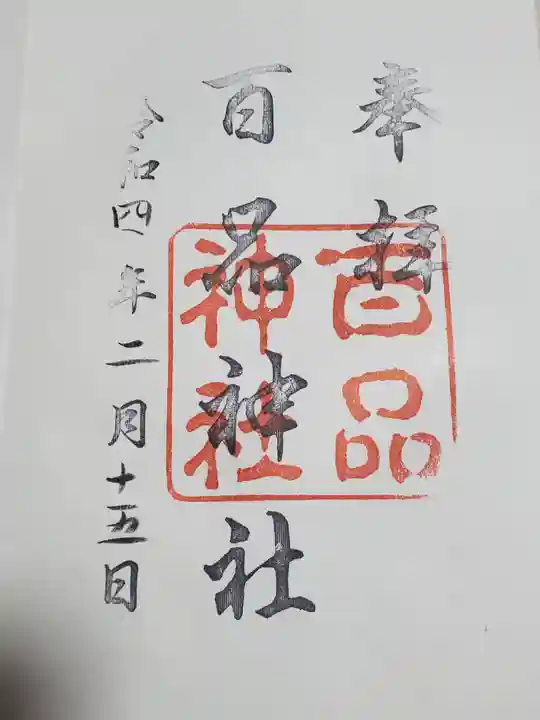 奉拝
百品神社
百品神社
令和四年二月十五日